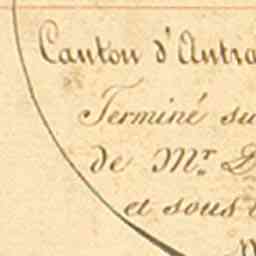 Canton d'Antra
Terminé su
de Mr. D
et sous